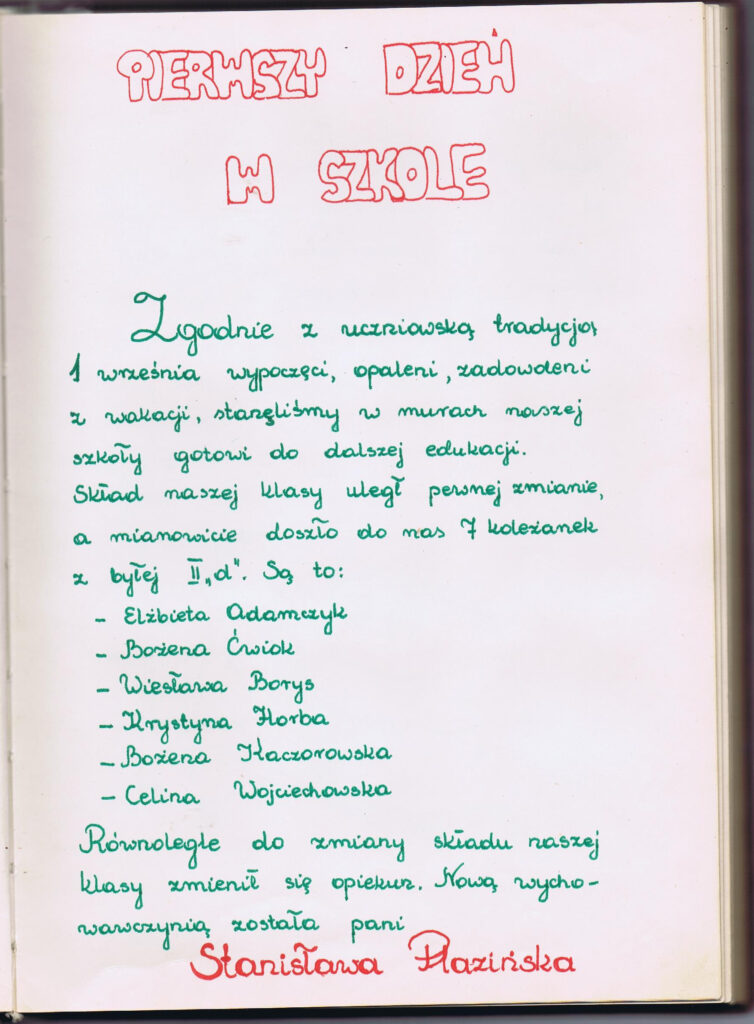 PIERWSZY DZIEŃ
W SZKOLE
Zgodnie z uczniawską tradycją,
1 września wypoczęci, opaleni, zadowoleni
z wakacji, stanęliśmy w murach naszej
szkoły gotowi do dalszej edukacji.
Skład naszej klasy uległ pewnej zmianie,
a mianowicie doszło do nas 7 koleżanek
z byłej II „d". Są to:
- Elżbieta Adamczyk
- Bożena Ćwiok
- Wiesława Borys
- Krystyna Horba
- Bożena Kaczorowska
- Celina Wojciechowska
Równolegle do zmiany składu naszej
klasy zmienił się opiekun. Nową wycho-
wawczynią została pani
Stanisława Płazińska